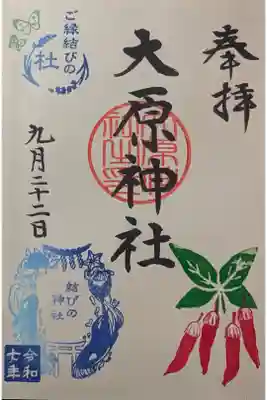 奉拝
大原神社
ご縁結びの
社
九月二十二日
結びの
神社
令和
七年